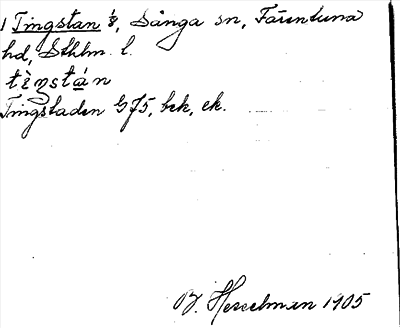 1 Tingstan ⅛, Sånga sn, Färentuna
hd, Sthlm. l.
tìŋstán
Tingstaden GJ5, bek, ek.
B. Hesselman 1905